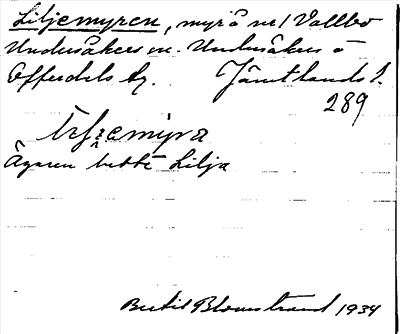 Liljemyren, myrå nr 1 Vallbo
Undersåkers sn. Undersåkers o
Offerdals tg. Jämtlands l.
289
Ägaren hette Lilja
Bertil Blomstrand 1934